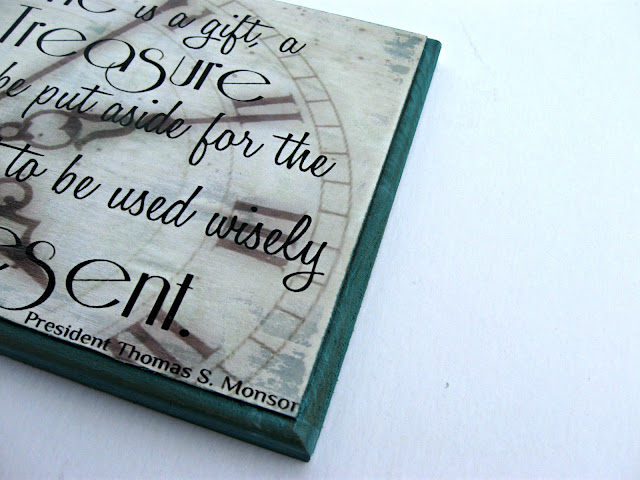 is a gift, a
Treasure
be put aside for the
to be used wisely
esent.
President Thomas S. Monson